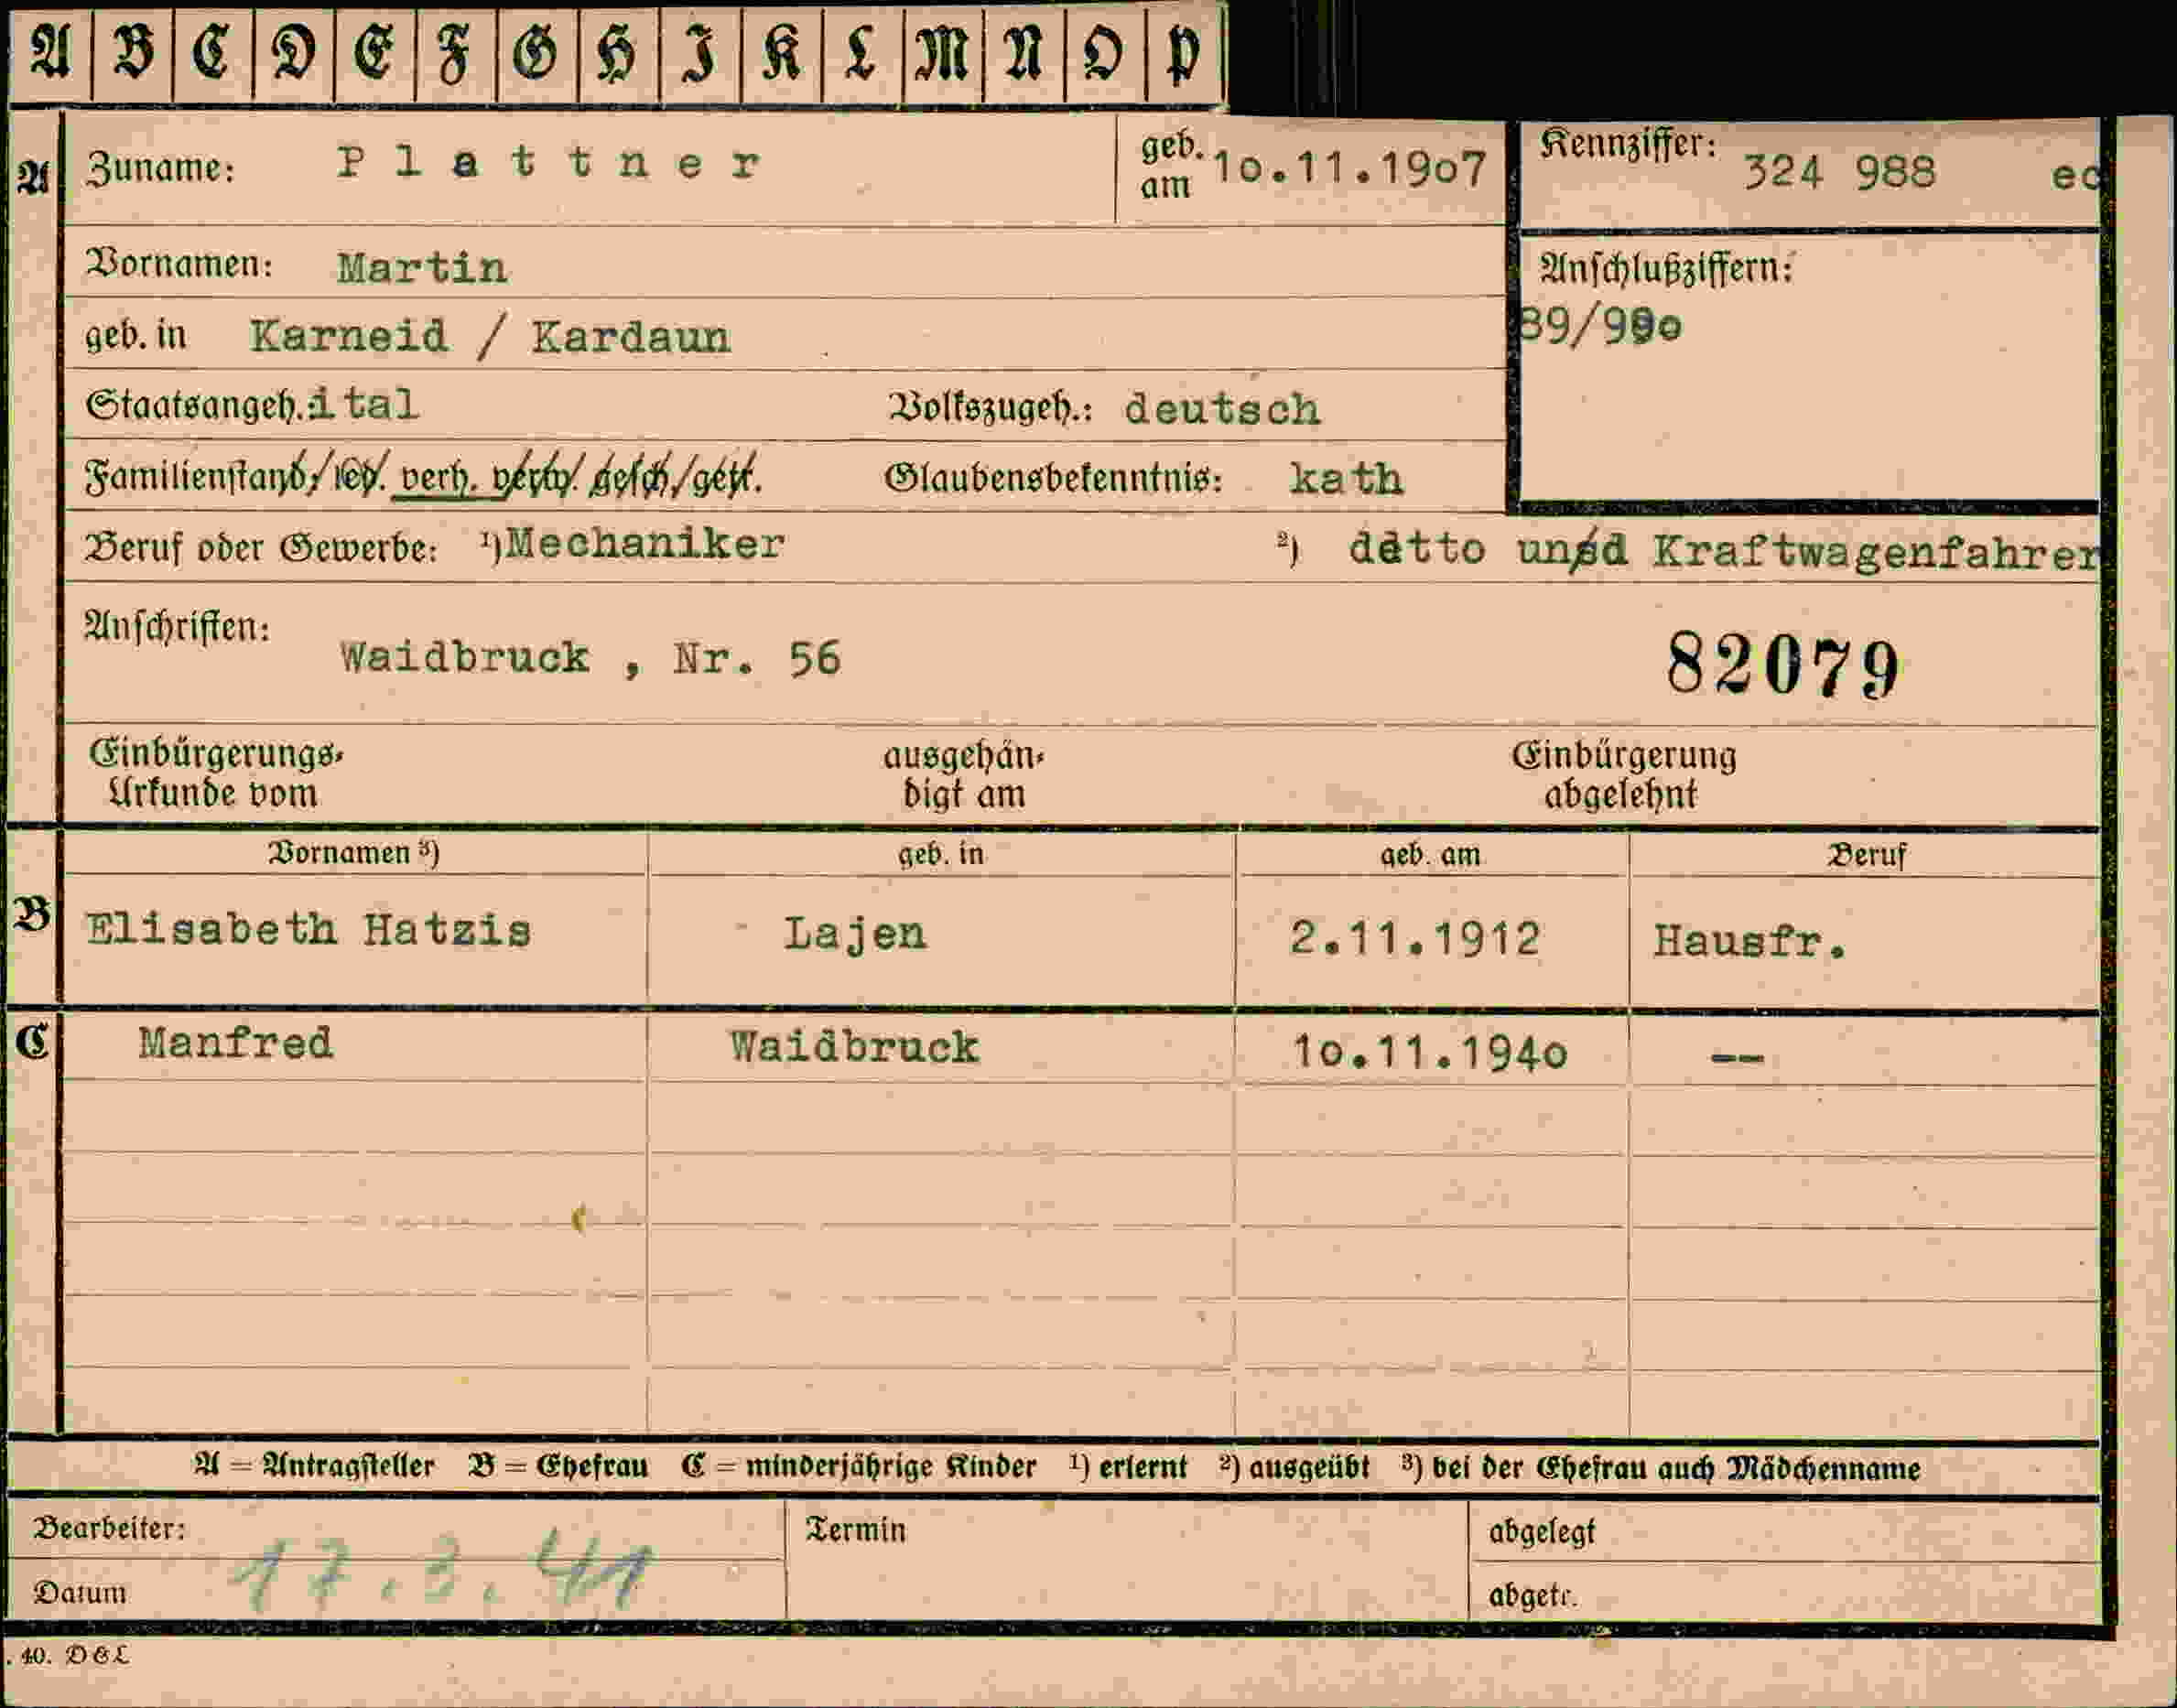 A B C D E F G H I K L M N O P
A Zuname: Plattner geb. am 1o.11.19o7 Kennziffer: 324 988 ec
Vornamen: Martin Anschlußziffern:
geb. in Karneid / Kardaun 89/99o
Staatsangeh.: ital Volkszugeh.: deutsch
Familienstand: led. verh. verw. gesch. getr. Glaubensbekenntnis: kath
Beruf oder Gewerbe: ¹) Mechaniker ²) detto und Kraftwagenfahrer
Anschriften: Waidbruck , Nr. 56 82079
Einbürgerungs- ausgehän- Einbürgerung
Urkunde vom digt am abgelehnt
Vornamen ³) geb. in geb. am Beruf
B Elisabeth Hatzis Lajen 2.11.1912 Hausfr.
C Manfred Waidbruck 1o.11.194o --
A = Antragsteller B = Ehefrau C = minderjährige Kinder ¹) erlernt ²) ausgeübt ³) bei der Ehefrau auch Mädchenname
Bearbeiter: Termin abgelegt
Datum 17.3.41 abgetr.
. 40. D & L